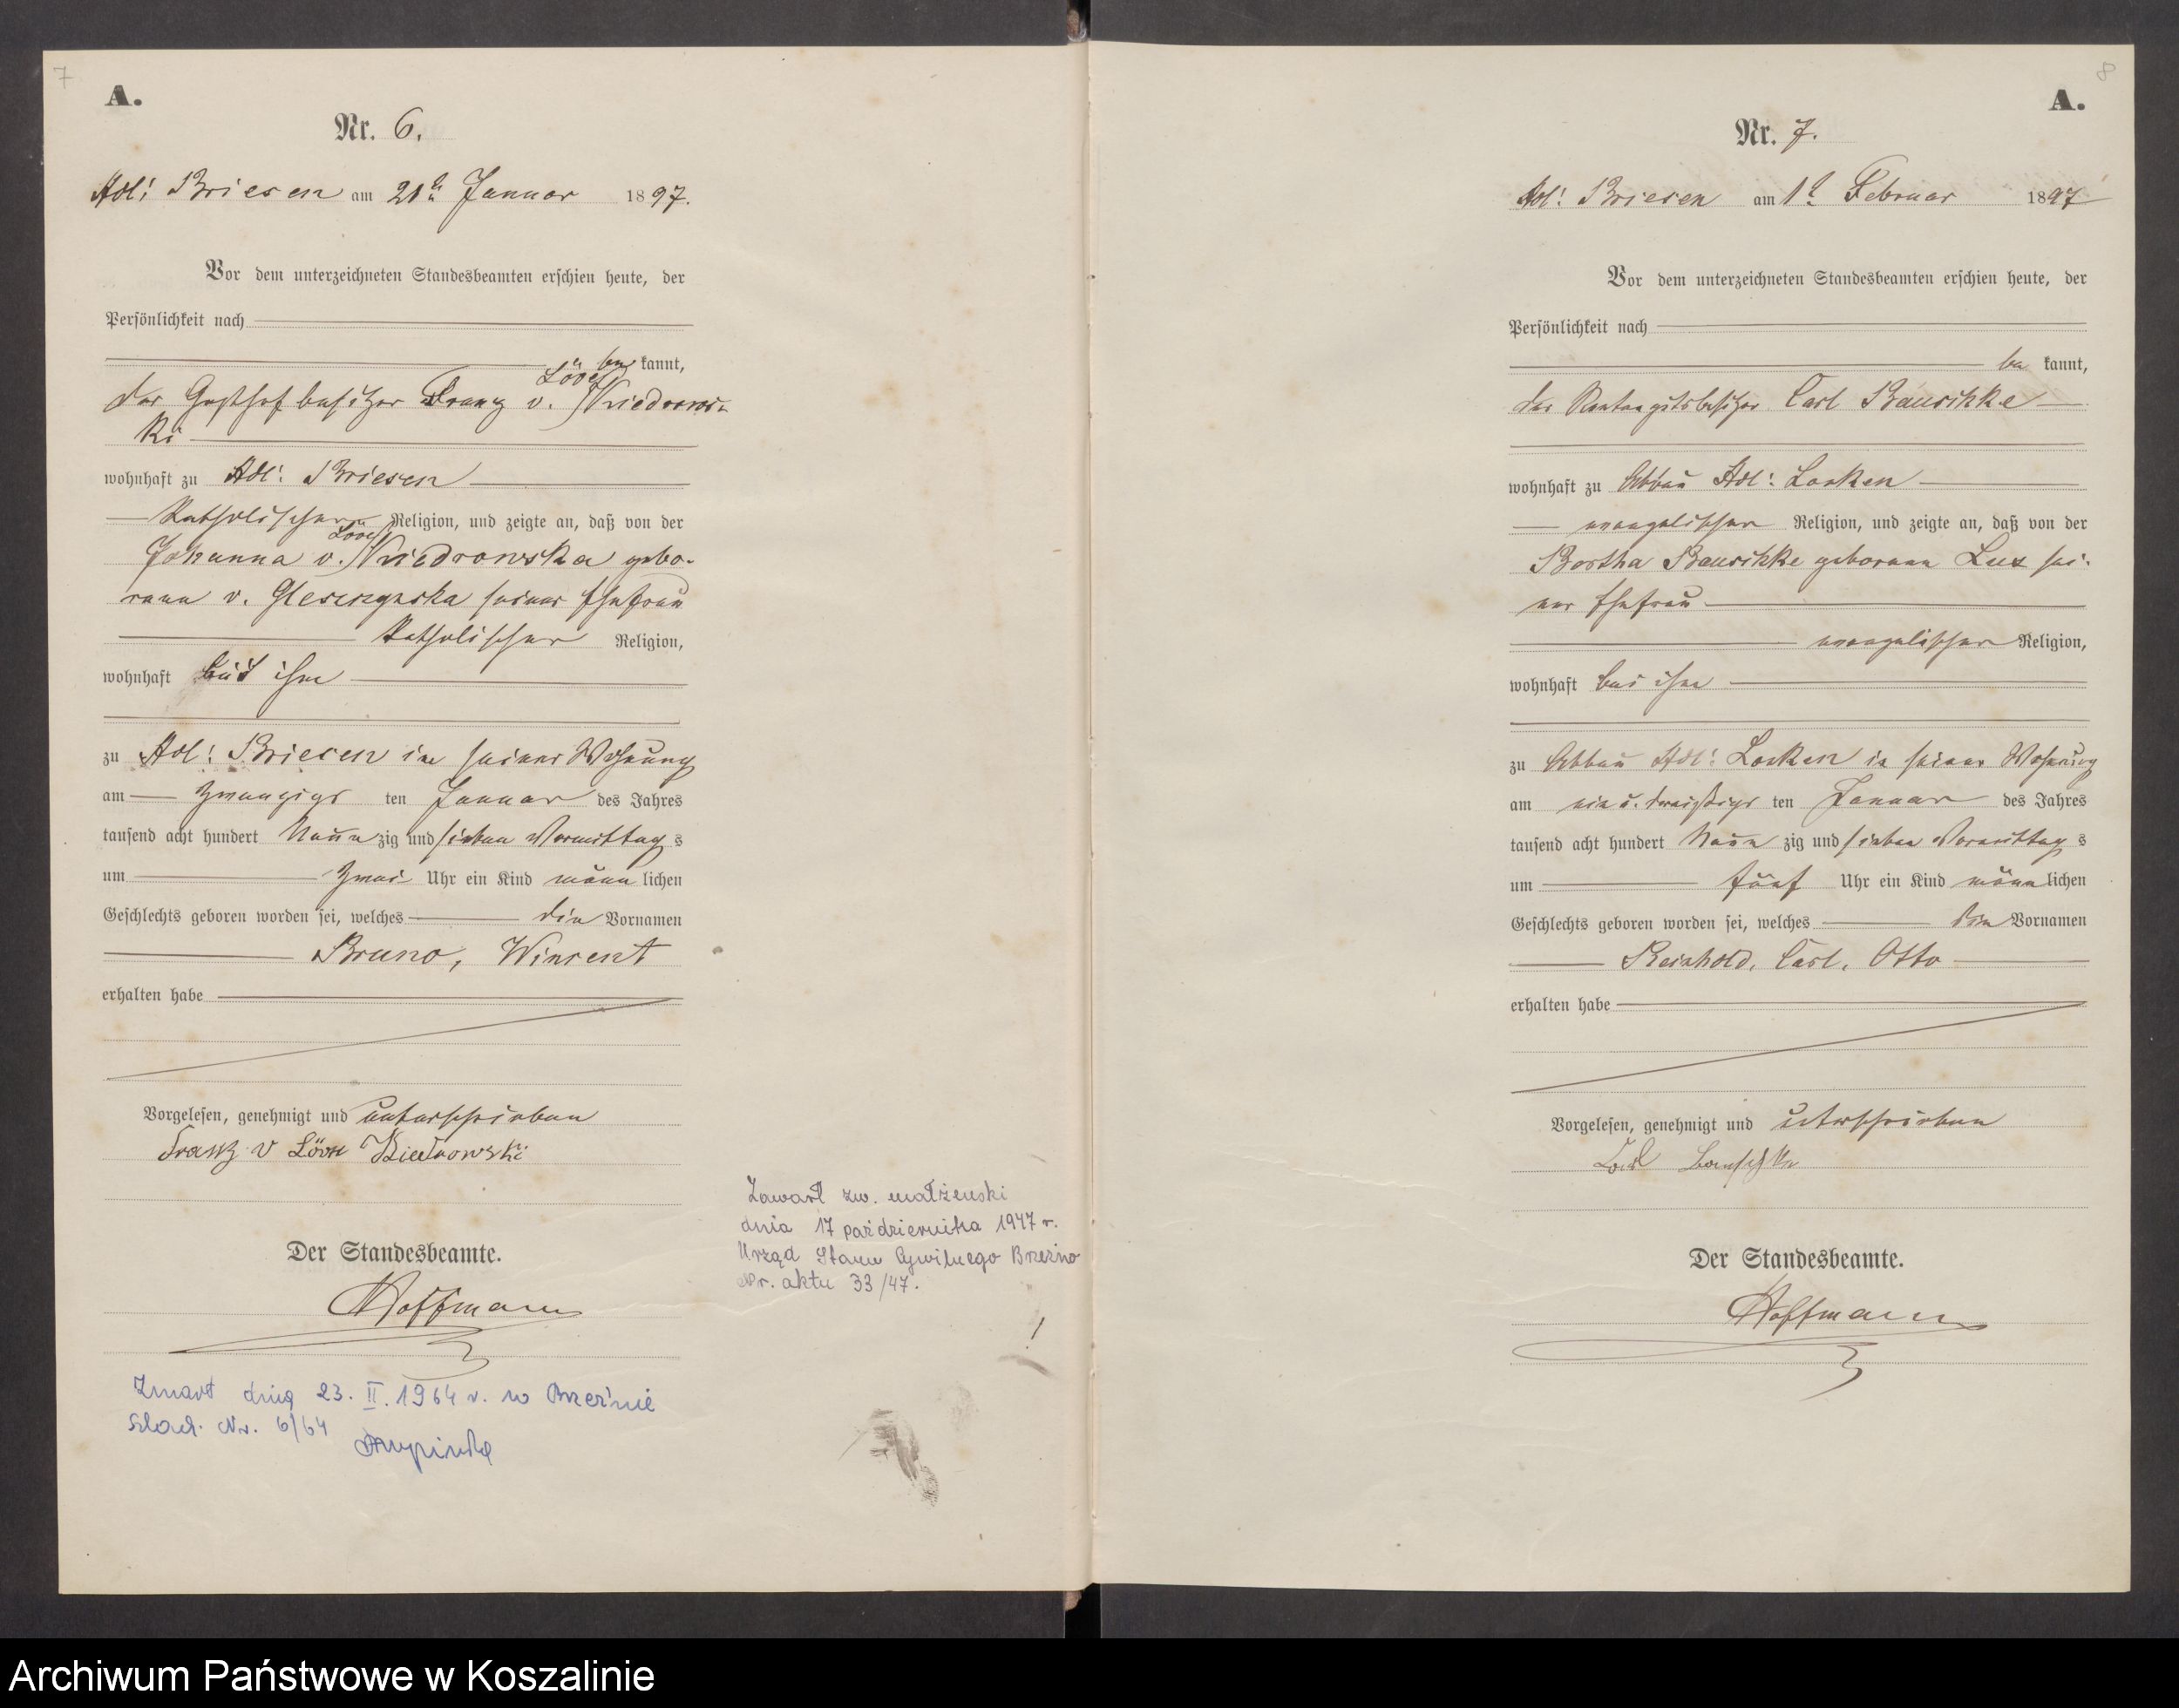 7
A.
Nr. 6.
Adl: Briesen am 21t Januar 1897.
Vor dem unterzeichneten Standesbeamten erschien heute, der
Persönlichkeit nach
be kannt,
Löv
der Gasthofbesitzer Franz v. Kiedrows-
ki
wohnhaft zu Adl: Briesen
katholischer Religion, und zeigte an, daß von der
Löv
Johanna v. Kiedrowska gebo-
rene v. seiner Ehefrau
katholischer Religion,
wohnhaft bei ihm
zu Adl: Briesen in seiner Wohnung
am zwanzigs ten Januar des Jahres
tausend acht hundert Neun zig und sieben Vormittag s
um zwei Uhr ein Kind männ lichen
Geschlechts geboren worden sei, welches die Vornamen
Bruno, Wincent
erhalten habe
Vorgelesen, genehmigt und unterschrieben
Franz v Lövn Kiedrowski
Der Standesbeamte.
Hoffmann
Zmarł dnia 23. II. 1964 r. w Brzeźnie
szlach. Nr. 6/64
Zawarł zw. małżenski
dnia 17 października 1947 r.
Urząd Stanu Cywilnego Brzeźno
Nr. aktu 33/47.
!
8
A.
Nr. 7.
Adl: Briesen am 1t Februar 1897
Vor dem unterzeichneten Standesbeamten erschien heute, der
Persönlichkeit nach
be kannt,
der Rentengutsbesitzer Carl Bauschke
wohnhaft zu Abbau Adl: Lonken
evangelischer Religion, und zeigte an, daß von der
Bertha Bauschke geborene Lux sei-
ner Ehefrau
evangelischer Religion,
wohnhaft bei ihm
zu Abbau Adl: Lonken in seiner Wohnung
am ein u. dreißigs ten Januar des Jahres
tausend acht hundert Neun zig und sieben Vormittag s
um fünf Uhr ein Kind männ lichen
Geschlechts geboren worden sei, welches die Vornamen
Reinhold, Carl, Otto
erhalten habe
Vorgelesen, genehmigt und unterschrieben
Carl Bauschke
Der Standesbeamte.
Hoffmann
Archiwum Państwowe w Koszalinie